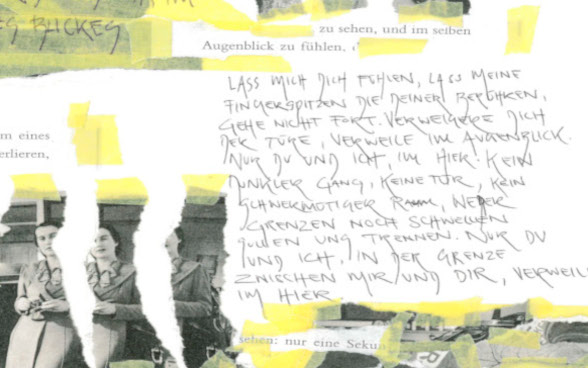 ES BLICKES
zu sehen, und im selben
Augenblick zu fühlen, d
LASS MICH DICH FÜHLEN, LASS MEINE
FINGERSPITZEN DIE DEINEN BERÜHREN,
GEHE NICHT FORT. VERWEIGERE DICH
m eines
DER TÜRE, VERWEILE IM AUGENBLICK.
erlieren,
NUR DU UND ICH, IM HIER. KEIN
DUNKLER GANG, KEINE TÜR, KEIN
RAUM, WEDER
GRENZEN NOCH SCHWELLEN
SOLLEN UNS TRENNEN. NUR DU
UND ICH, IN DER GRENZE
ZWISCHEN MIR UND DIR, VERWEILE
IM HIER
sehen: nur eine Seku